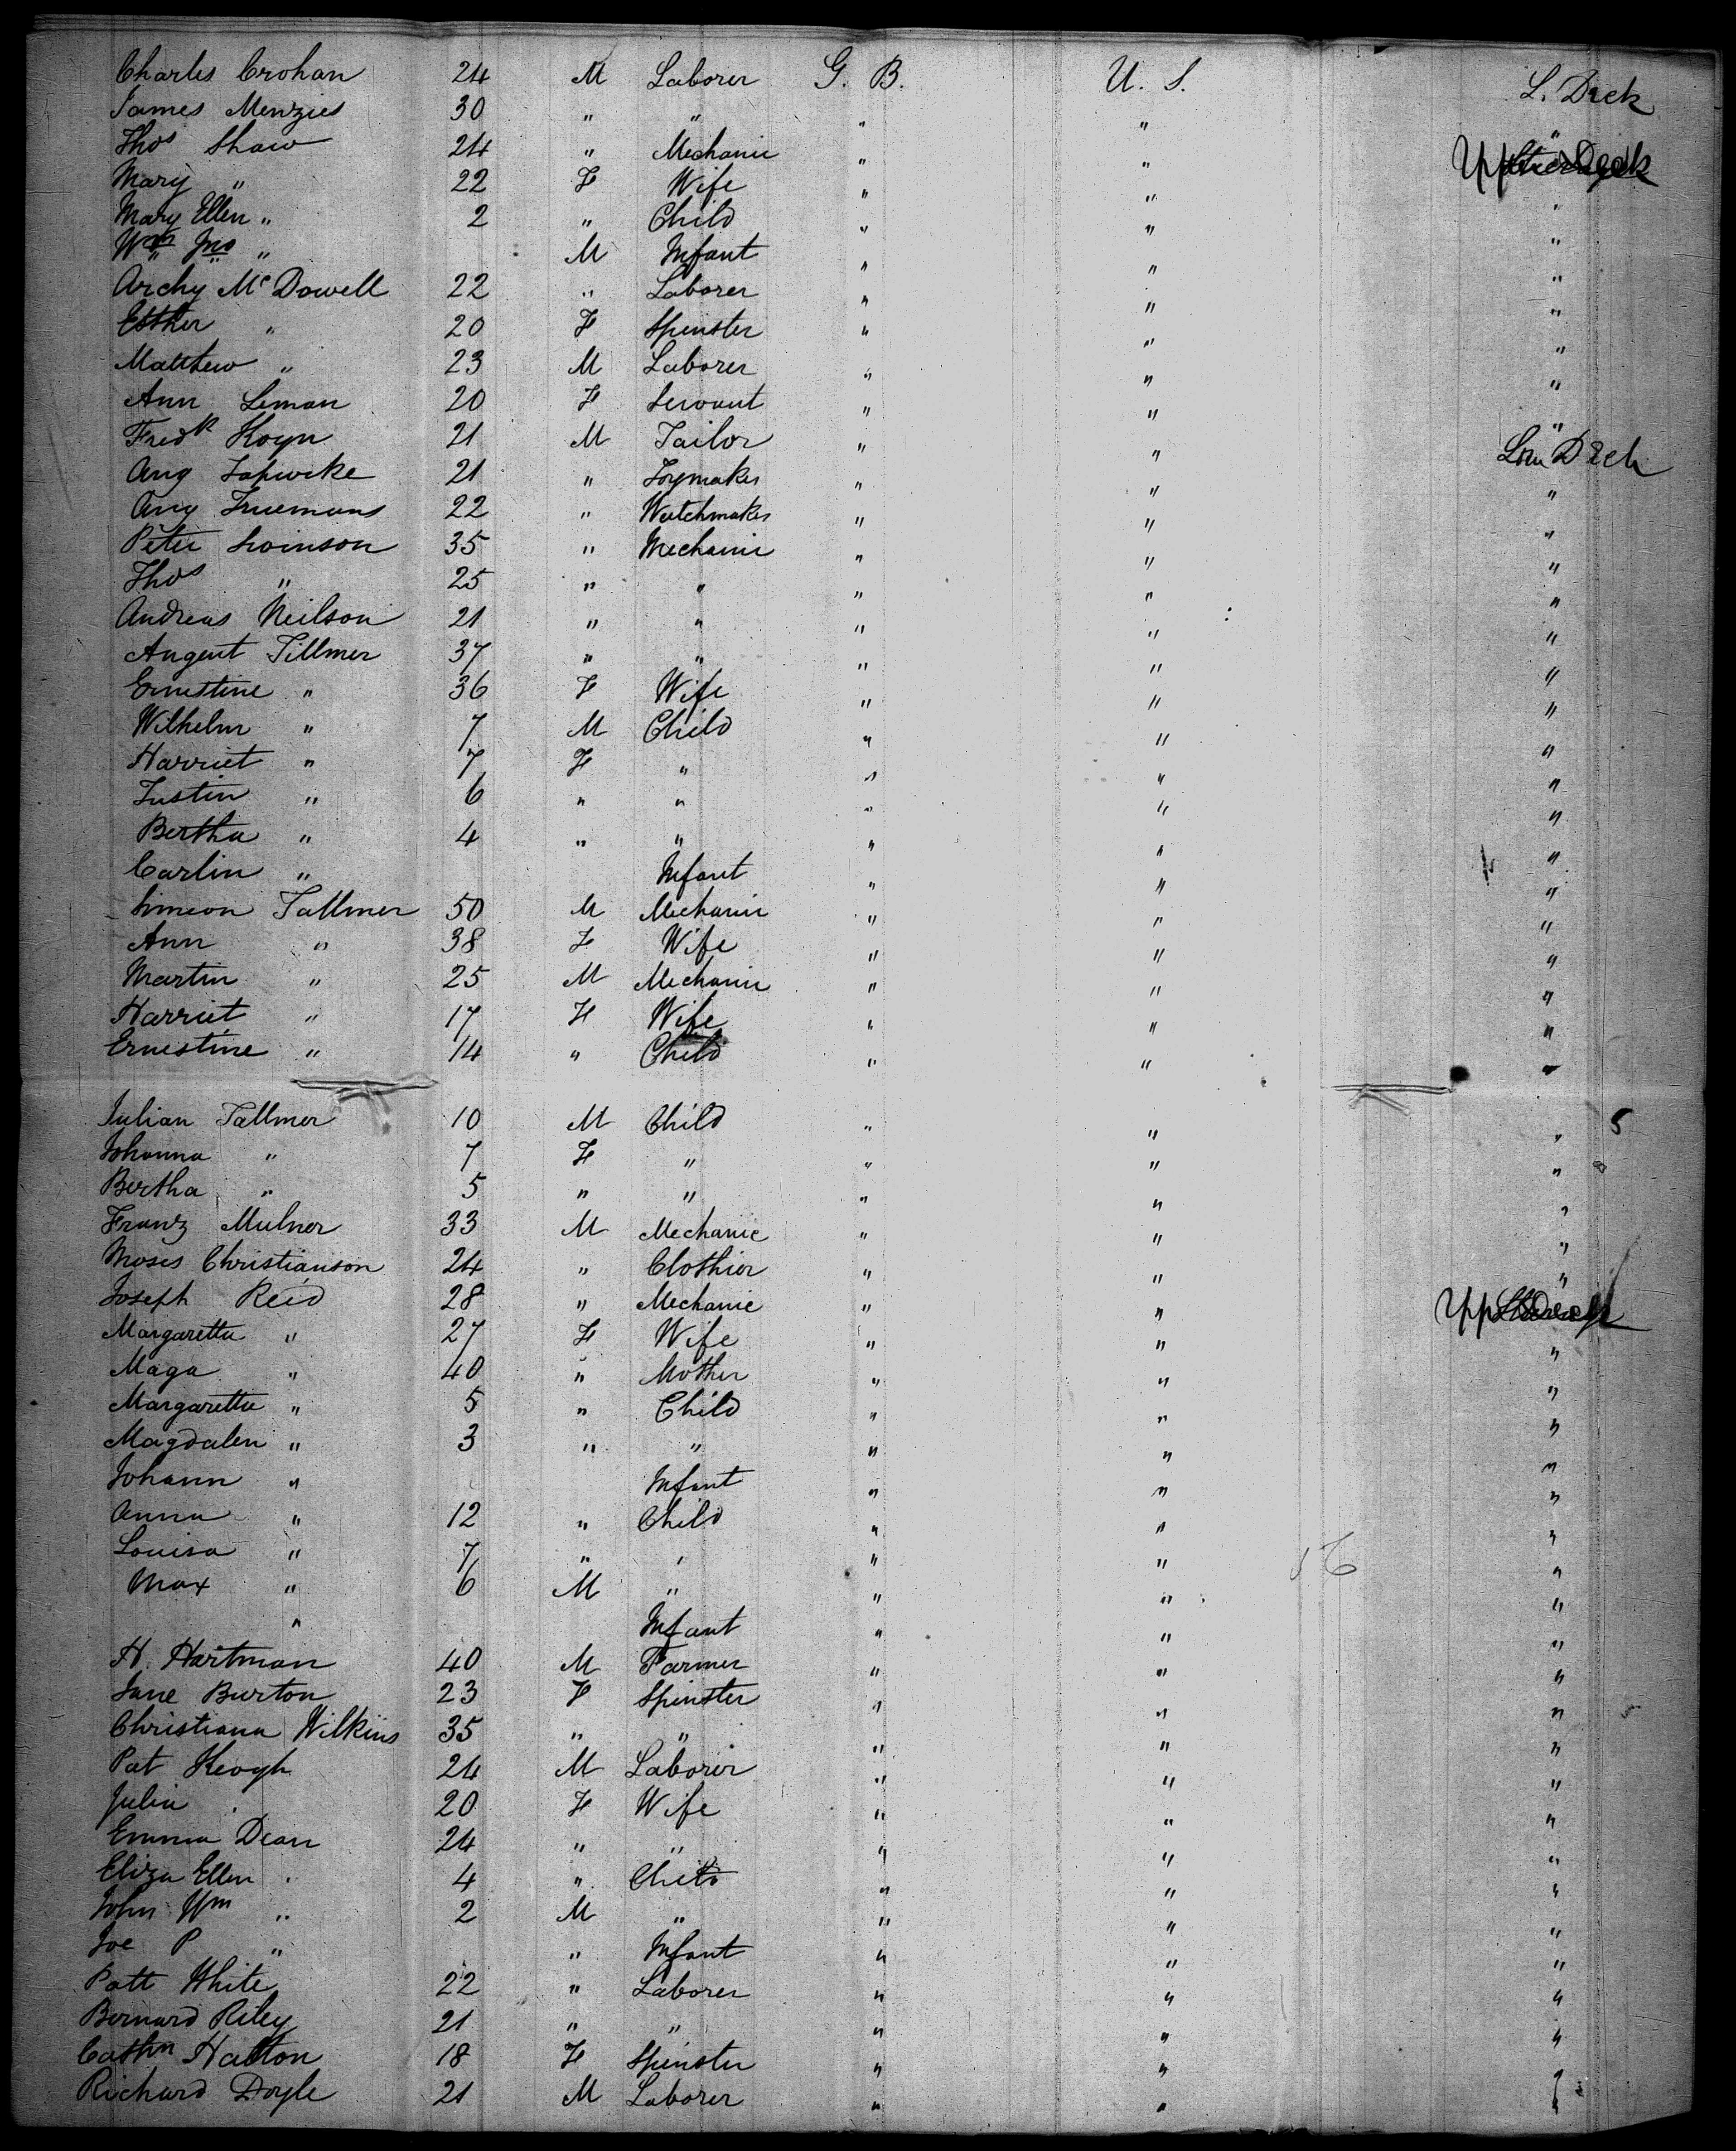 Charles Crohan 24 M Laborer G. B. U. S. L. Deck
James Menzies 30 " " " " "
Thos Shaw 24 " Mechanic " " Upper Deck
Mary " 22 F Wife " " "
Mary Ellen " 2 " Child " " "
Wm Jno " M Infant " " "
Archy McDowell 22 " Laborer " " "
Esther " 20 F Spinster " " "
Matthew " 23 M Laborer " " "
Ann Leman 20 F Servant " " "
Fredk Hoyn 21 M Tailor " " Low Deck
Aug Lapwcke 21 " Toymaker " " "
Aug Truemans 22 " Watchmaker " " "
Peter Swinson 35 " Mechanic " " "
Thos " 25 " " " " "
Andreas Neilson 21 " " " " "
Angent Tillmer 37 " " " " "
Ernestine " 36 F Wife " " "
Wilhelm " 7 M Child " " "
Harriet " 7 F " " " "
Justin " 6 " " " " "
Bertha " 4 " " " " "
Carlin " Infant " " "
Simeon Tallmer 50 M Mechanic " " "
Ann " 38 F Wife " " "
Martin " 25 M Mechanic " " "
Harriet " 17 F Wife " " "
Ernestine " 14 " Child " " "
Julian Tallmer 10 M Child " " " 5
Johanna " 7 F " " " "
Bertha " 5 " " " " "
Franz Mulner 33 M Mechanic " " "
Moses Christianson 24 " Clothier " " "
Joseph Reid 28 " Mechanic " " Upp Deck
Margaretta " 27 F Wife " " "
Maga " 40 " Mother " " "
Margaretta " 5 " Child " " "
Magdalen " 3 " " " " "
Johann " Infant " " "
Anna " 12 " Child " " "
Louisa " 7 " " " " "
Max " 6 M " " " "
" Infant " " "
H. Hartman 40 M Farmer " " "
Jane Burton 23 F Spinster " " "
Christiana Wilkins 35 " " " " "
Pat Keogh 24 M Laborer " " "
Julia " 20 F Wife " " "
Emma Dean 24 " " " " "
Eliza Ellen " 4 " Child " " "
John Wm " 2 M " " " "
Joe P " " Infant " " "
Patt White 22 " Laborer " " "
Bernard Riley 21 " " " " "
Cathn Halton 18 F Spinster " " "
Richard Doyle 21 M Laborer " " "